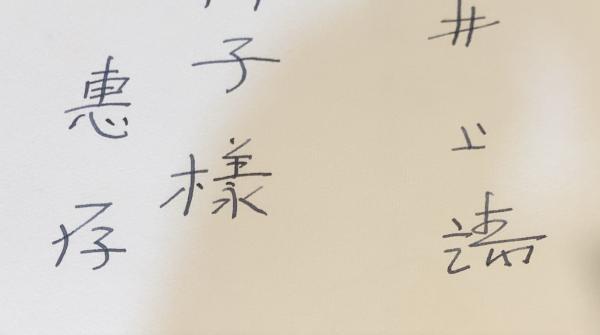 井上靖
子様
惠存